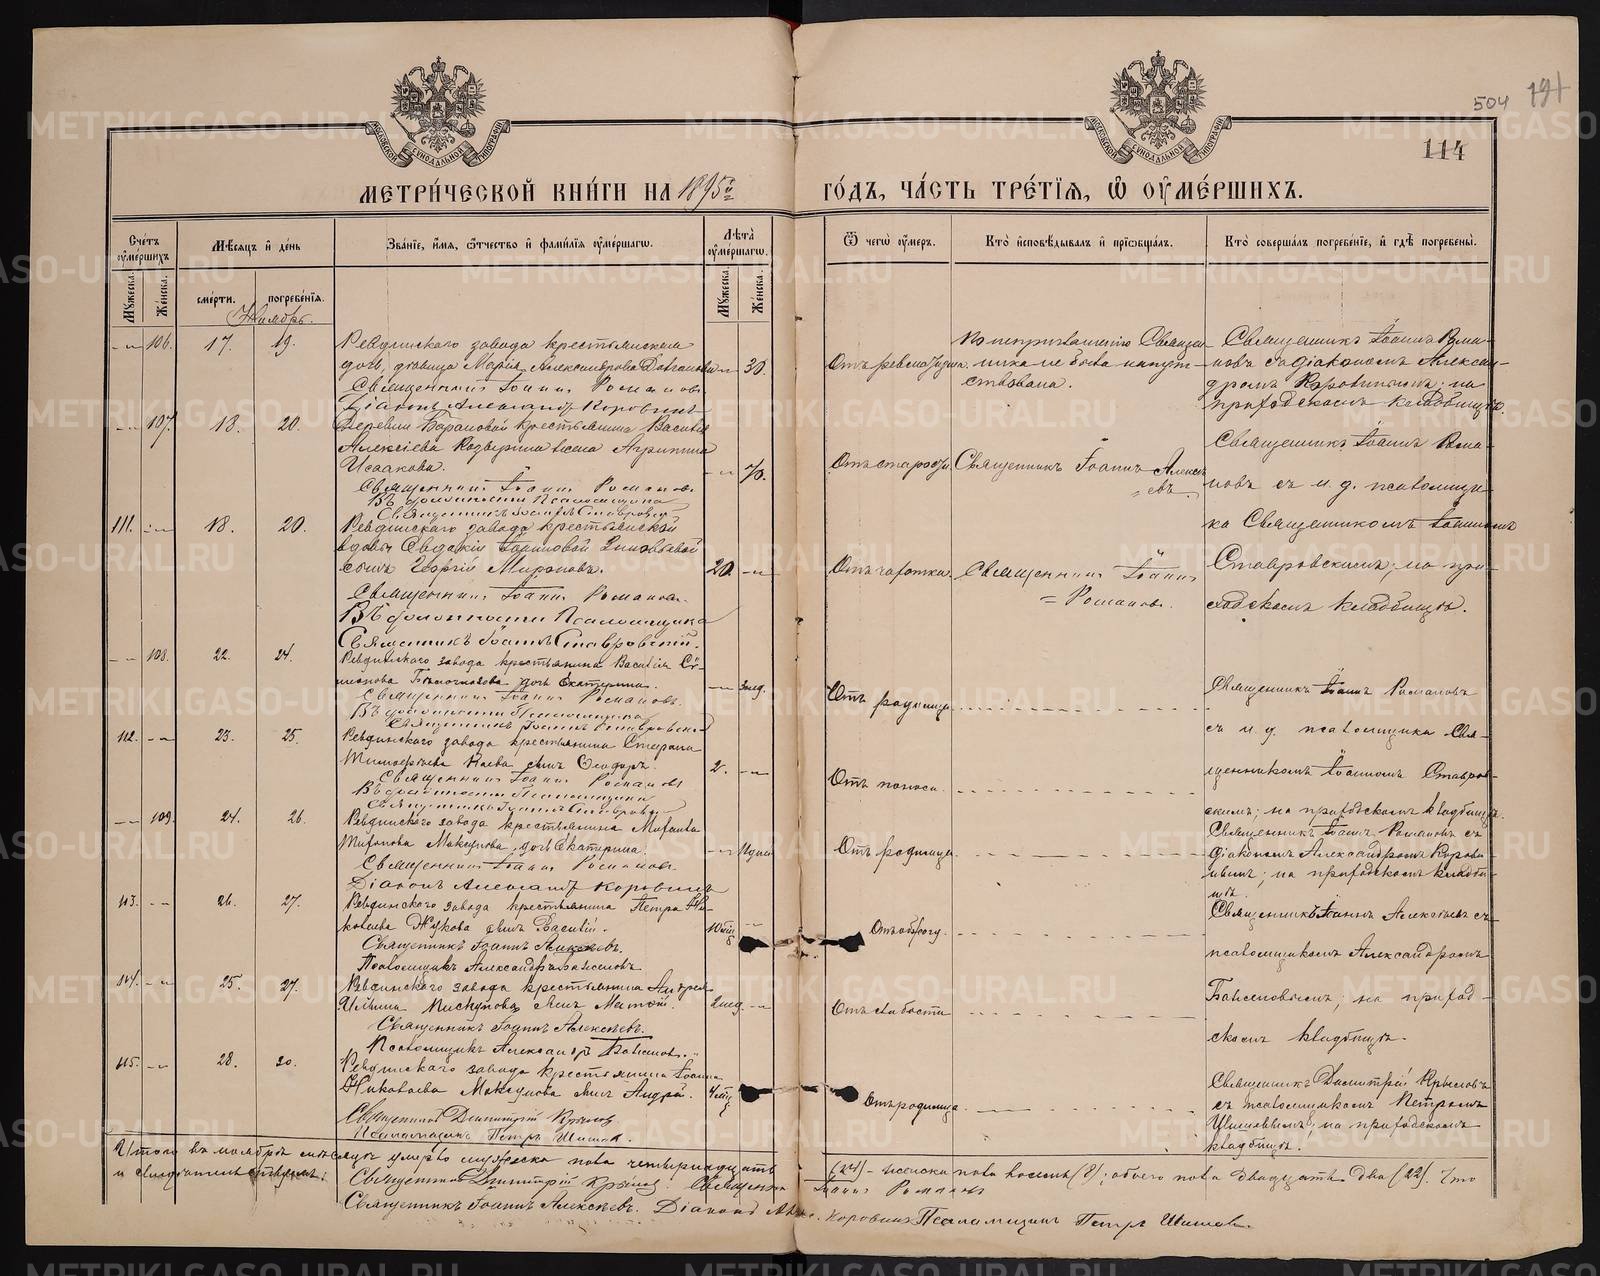 504 191
114
МЕТРИЧЕСКОЙ КНИГИ НА 1895й
ГОДЪ, ЧАСТЬ ТРЕТІЯ, Ѿ ОУМЕРШИХЪ.
Счетъ оумершихъ
Мѣсяцъ и день
Званіе, имя, отчество и фамилія оумершагω.
Лѣта оумершагω.
Ѿ чегω оумеръ.
Кто исповѣдывалъ и пріωбщалъ.
Кто совершалъ погребеніе, и гдѣ погребены.
Мужеска.
Женска.
смерти.
погребенія.
Мужеска.
Женска.
Ноябрь.
106. 17. 19.
Ревдинскаго завода крестьянская
дочь, дѣвица Марія Александрова
30.
Отъ ревматизма.
Священникъ Іоаннъ Рома-
новъ съ діакономъ Алексан-
дромъ Коровинымъ; на
приходскомъ кладбищѣ.
Священникъ Іоаннъ Романовъ
Діаконъ Александръ Коровинъ
107. 18. 20.
Деревни Барановой крестьянина Василія
Алексіева жена Агрипина
Исаакова.
70.
Отъ старости.
Священникъ Іоаннъ Алексѣ-
евъ.
Священникъ Іоаннъ Рома-
новъ съ и. д. псаломщи-
ка Священникомъ Іоанномъ
Ставровскимъ; на при-
ходскомъ кладбищѣ.
Священникъ Іоаннъ Романовъ
Въ должности Псаломщика
Священникъ Іоаннъ Ставровскій
111. 18. 20.
Ревдинскаго завода крестьянской
вдовы Евдокіи Іоанновой Зиновьевой
сынъ Георгій Мироновъ.
20.
Отъ чахотки.
Священникъ Іоаннъ
Романовъ.
Священникъ Іоаннъ Романовъ.
Въ должности Псаломщика
Священникъ Іоаннъ Ставровскій.
108. 22. 24.
Ревдинскаго завода крестьянина Василія
дочь Екатерина.
3 нед.
Отъ родимца.
Священникъ Іоаннъ Романовъ
съ и. д. псаломщика Свя-
щенникомъ Іоанномъ Ставров-
скимъ; на приходскомъ кладбищѣ.
Священникъ Іоаннъ Романовъ.
Въ должности Псаломщика
Священникъ Іоаннъ Ставровскій
112. 23. 25.
Ревдинскаго завода крестьянина Стефана
Тимофѣева сынъ Ѳеодоръ.
2.
Отъ поноса.
Священникъ Іоаннъ Романовъ
Въ должности Псаломщика
Священникъ Іоаннъ Ставровскій
109. 24. 26.
Ревдинскаго завода крестьянина Михаила
Мокрунова, дочь Екатерина.
11 дней
Отъ родимца
Священникъ Іоаннъ Романовъ съ
діакономъ Александромъ Корови-
нымъ; на приходскомъ кладби-
щѣ.
Священникъ Іоаннъ Романовъ.
Діаконъ Александръ Коровинъ
113. 26. 27.
Ревдинскаго завода крестьянина Петра Ни-
колаева Жукова сынъ Василій.
10
Священникъ Іоаннъ Алексѣевъ съ
псаломщикомъ Александромъ
на приход-
скомъ кладбищѣ.
Священникъ Іоаннъ Алексѣевъ.
Псаломщикъ Александръ
114. 25. 27.
Ревдинскаго завода крестьянина Андрея
Ильина Пискунова сынъ
2 нед.
Отъ слабости
Священникъ Іоаннъ Алексѣевъ.
Псаломщикъ Александръ
115. 28. 30.
Ревдинскаго завода крестьянина Іоанна
Николаева сынъ Андрей.
4
Отъ родимца.
Священникъ Димитрій Крыловъ
съ псаломщикомъ Петромъ
Шишовымъ; на приходскомъ
кладбищѣ.
Священникъ Димитрій Крыловъ
Псаломщикъ Петръ Шишовъ.
Итого въ ноябрѣ мѣсяцѣ умерло мужеска пола четырнадцать
(14) - женска пола восемь (8); обоего пола двадцать два (22). Что
Священникъ Димитрій Крыловъ. Священникъ Іоаннъ Романовъ
Священникъ Іоаннъ Алексѣевъ. Діаконъ Коровинъ Псаломщикъ Петръ Шишовъ.
METRIKI.GASO-URAL.RU